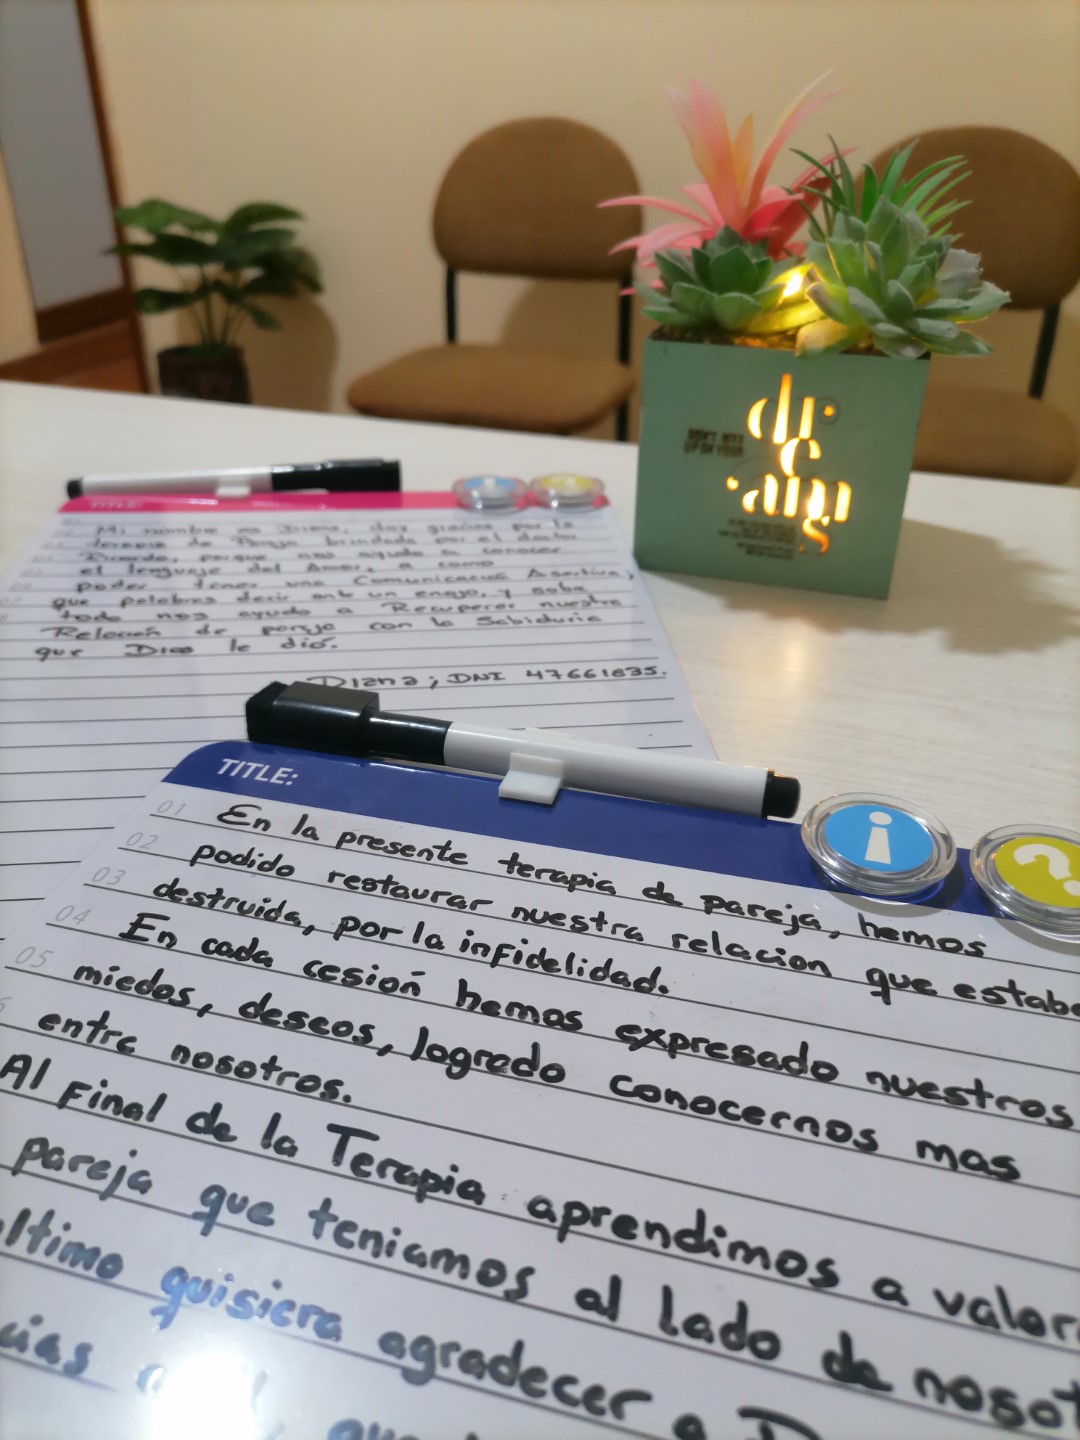 TITLE:
Mi nombre es Diana, doy gracias por la
terapia de Pareja brindada por el doctor
Ricardo, porque nos ayudo a conocer
el lenguaje del Amor, a como
poder tener una Comunicación Asertiva,
que palabras decir ante un enojo, y sobre
todo nos ayudo a Recuperar nuestra
Relación de pareja con la Sabiduria
que Dios le dió.
Diana; DNI 47661835.
dreams
DON'T GIVE
UP ON YOUR
TITLE:
01 En la presente terapia de pareja, hemos
02 podido restaurar nuestra relacion que estaba
03 destruida, por la infidelidad.
04 En cada cesión hemos expresado nuestros
05 miedos, deseos, logrado conocernos mas
entre nosotros.
Al Final de la Terapia aprendimos a valor
pareja que teniamos al lado de nosot
ltimo quisiera agradecer a
cias
i
?